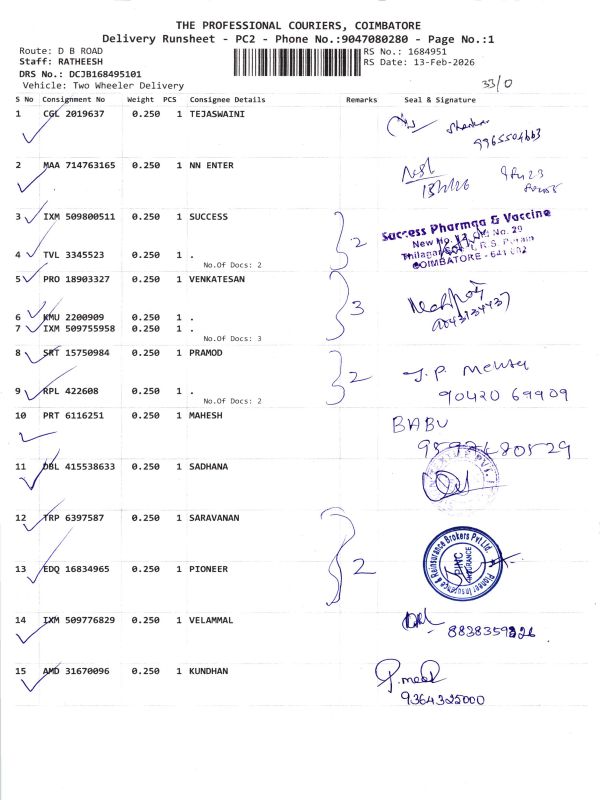 THE PROFESSIONAL COURIERS, COIMBATORE
Delivery Runsheet - PC2 - Phone No.:9047080280 - Page No.:1
Route: D B ROAD RS No.: 1684951
Staff: RATHEESH RS Date: 13-Feb-2026
DRS No.: DCJB168495101
Vehicle: Two Wheeler Delivery 33/0
S No Consignment No Weight PCS Consignee Details Remarks Seal & Signature
1 CGL 2019637 0.250 1 TEJASWAINI
2 MAA 714763165 0.250 1 NN ENTER
13/2/26
3 IXM 509800511 0.250 1 SUCCESS 2 Success Pharmaa & Vaccine
New No. No. 29
4 TVL 3345523 0.250 1 .
No.Of Docs: 2 COIMBATORE - 641 002
5 PRO 18903327 0.250 1 VENKATESAN 3
6 KMU 2200909 0.250 1 .
7 IXM 509755958 0.250 1 .
No.Of Docs: 3
8 SRT 15750984 0.250 1 PRAMOD 2 J.P. Mehta
9 RPL 422608 0.250 1 . 90420 69909
No.Of Docs: 2
10 PRT 6116251 0.250 1 MAHESH BABU
11 DBL 415538633 0.250 1 SADHANA
12 TRP 6397587 0.250 1 SARAVANAN 2
13 EDQ 16834965 0.250 1 PIONEER Pioneer Insurance & Reinsurance Brokers Pvt.Ltd.
14 IXM 509776829 0.250 1 VELAMMAL
8838359226
15 AMD 31670096 0.250 1 KUNDHAN
9364325000